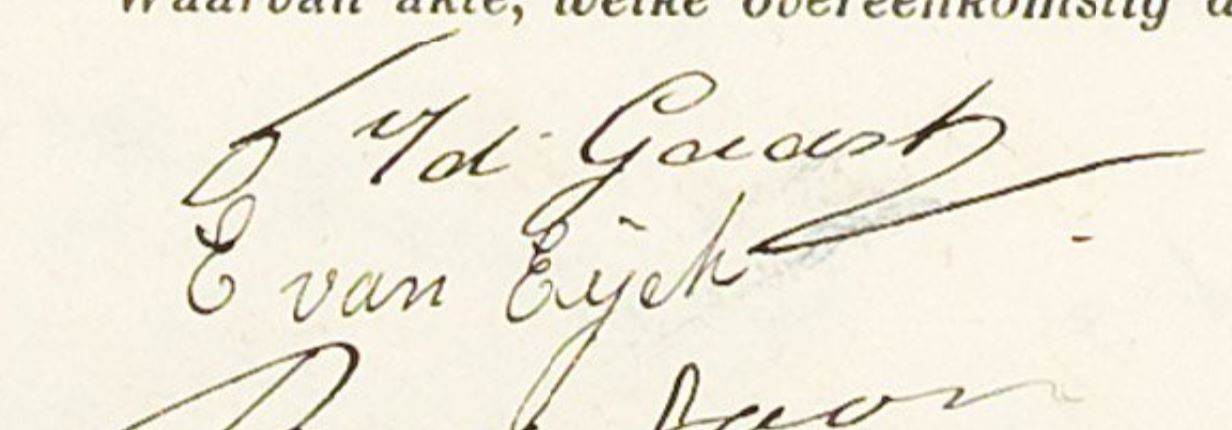 Waarvan akte, welke overeenkomstig
v/d Gaast
E van Eijck